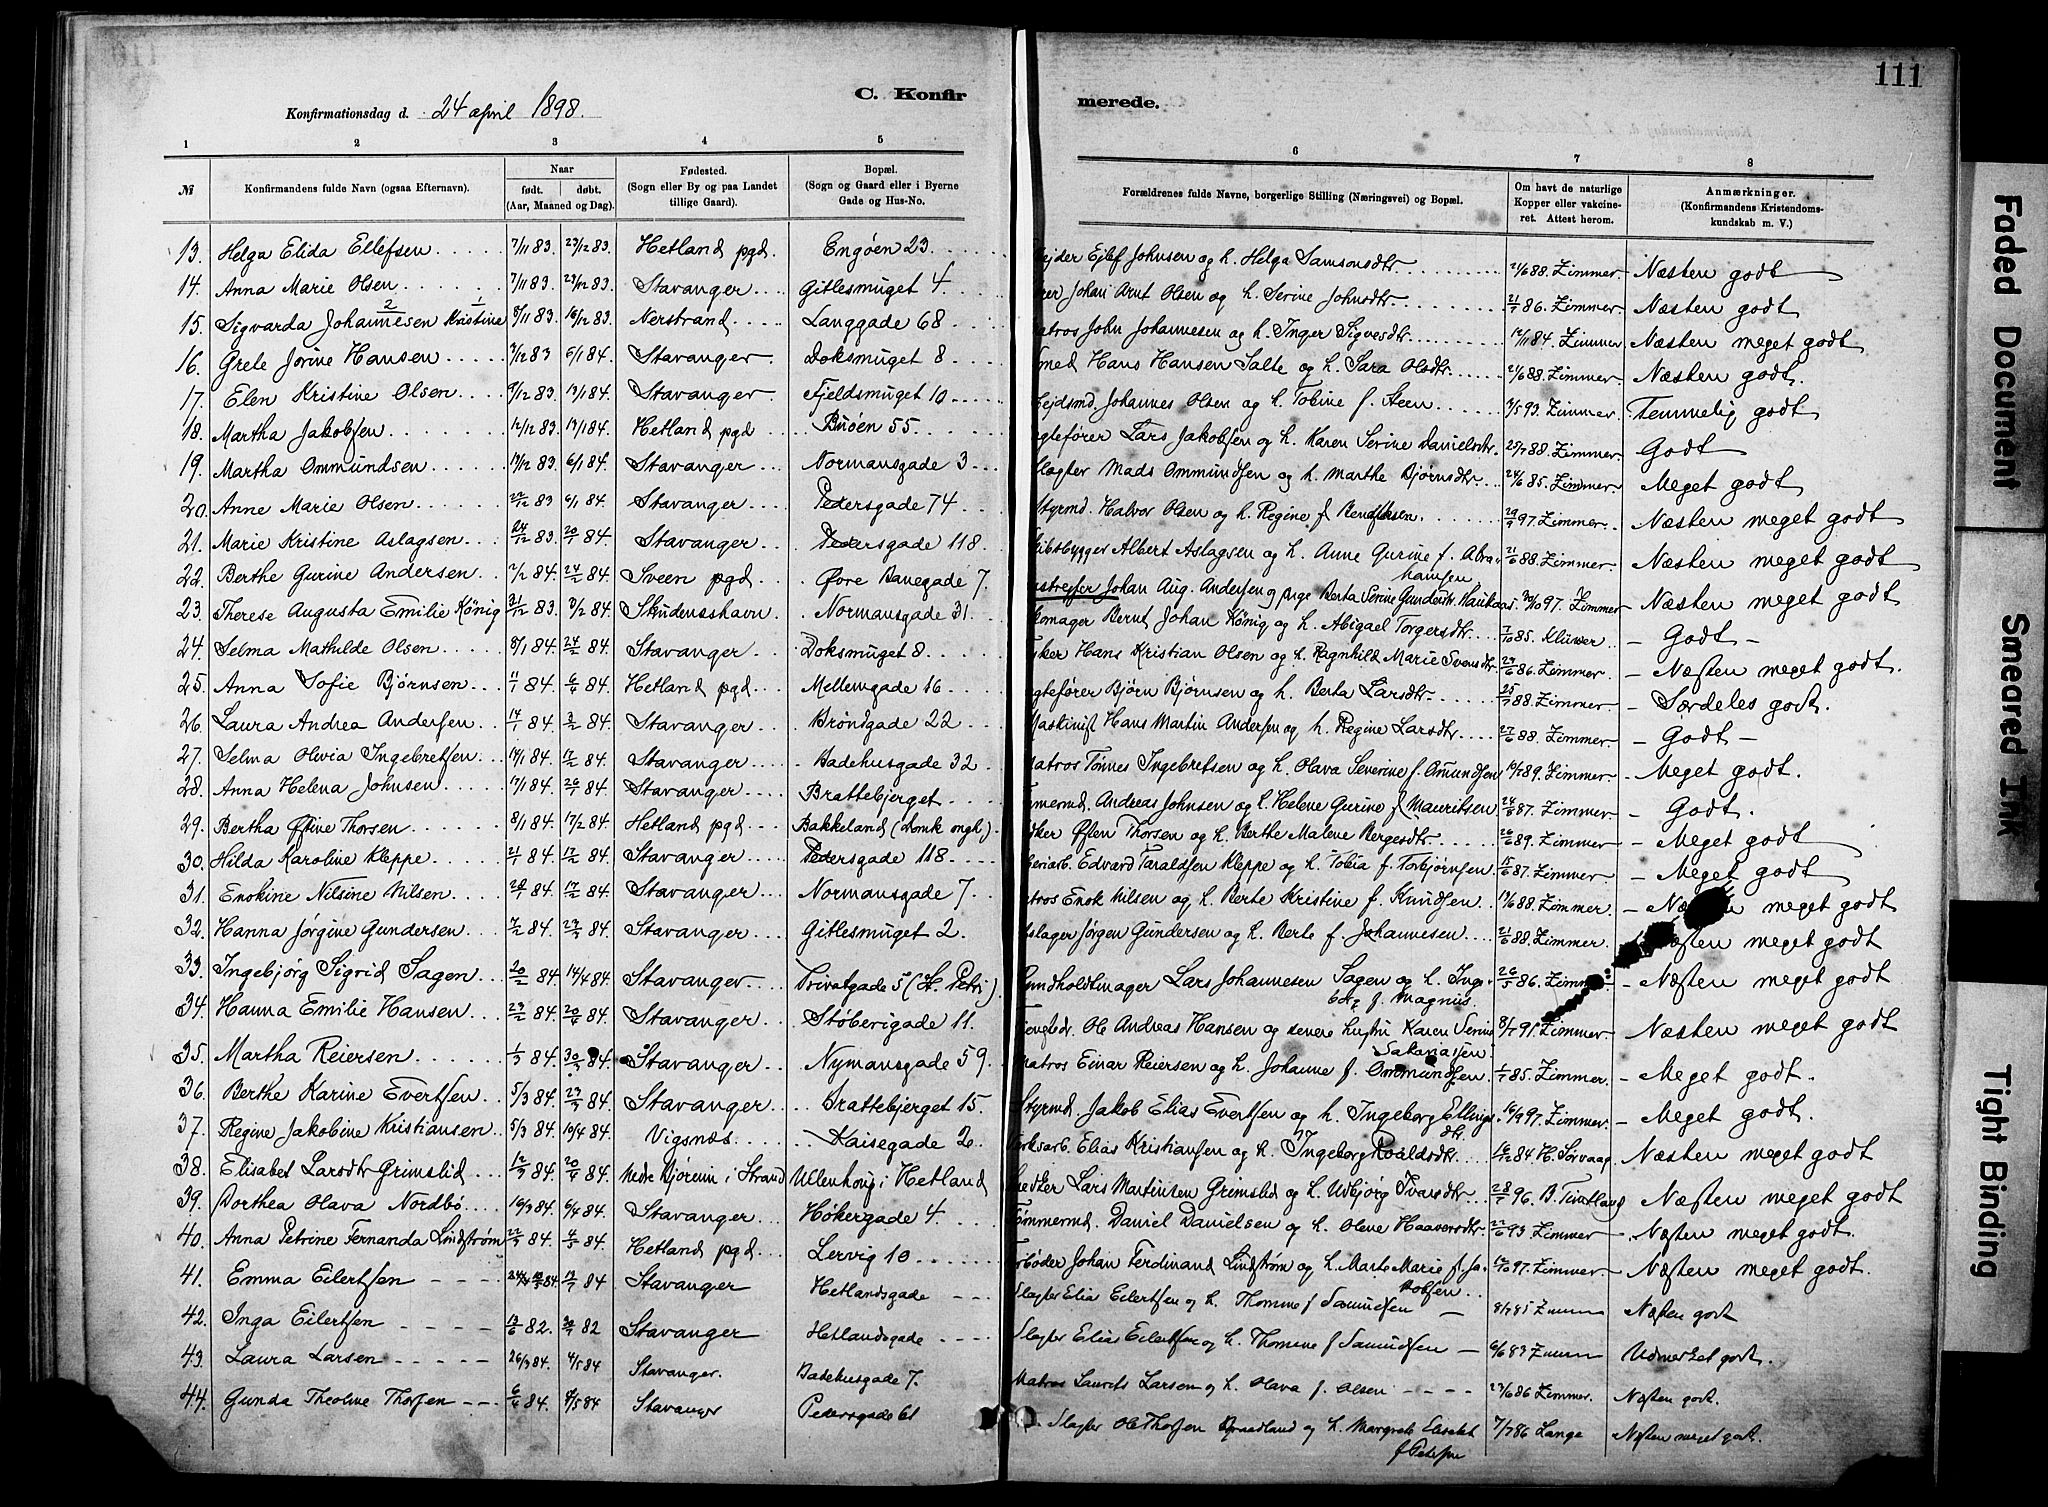 111
C. Konfir merede.
Konfirmationsdag d. 24 april 1898.
1 2 3 4 5 6 7 8
№ Konfirmandens fulde Navn (ogsaa Efternavn). Naar født. døbt. (Aar, Maaned og Dag). Fødested. (Sogn eller By og paa Landet tillige Gaard). Bopæl. (Sogn og Gaard eller i Byerne Gade og Hus-No. Forældrenes fulde Navne, borgerlige Stilling (Næringsvei) og Bopæl. Om havt de naturlige Kopper eller vakcineret. Attest herom. Anmærkninger. (Konfirmandens Kristendomskundskab m. V.)
13. Helga Elida Ellefsen 7/11 83. 23/12 83. Hetland pgd. Engøen 23. Ejlef Johnsen og h. Helga Samsonsdtr. 21/6 88. Zimmer. Næsten godt
14. Anna Marie Olsen 7/11 83. 23/12 83. Stavanger Gitlesmuget 4. Johan Arnt Olsen og h. Serine Johnsdtr. 86. Zimmer. Næsten godt
15. Sigvarda Johannesen Kristine 8/11 83. 16/12 83. Nerstrand Langgade 68 John Johannesen og h. Inger Sigvesdtr. 84. Zimmer Næsten meget godt
16. Grete Jorine Hansen 83 6/1 84. Stavanger. Doksmuget 8 Hans Hansen Salte og h. Sara Olsdtr. 21/6 88. Zimmer. Næsten godt.
17. Elen Kristine Olsen 9/12 83. 13/1 84. Stavanger Fjeldsmuget 10 Johannes Olsen og h. Tobine f. Steen 3/5 93. Zimmer. Temmelig godt
18. Martha Jakobsen 12/12 83. 13/1 84. Hetland pgd Buøen 55. Lars Jakobsen og h. Karen Serine Danielsdtr. 25/7 88. Zimmer. Godt
19. Martha Ommundsen 13/12 83. 6/1 84. Stavanger Normansgade 3 Mads Ommundsen og h. Marthe Bjørnsdtr. 24/6 85. Zimmer. Meget godt
20. Anne Marie Olsen 83 6/1 84. Stavanger Pedersgade 74 Styrmd. Halvor Olsen og h. Regine f. Bendiksen. 97. Zimmer. Næsten meget godt
21. Marie Kristine Aslagsen 24/12 83. 20/1 84. Stavanger Pedersgade 118. Albert Aslagsen og h. Anne Gurine f. Abrahamsen 21/6 88. Zimmer. Næsten meget godt
22. Berthe Gurine Andersen 2/2 84. 24/2 84. Sveen pgd Øvre Banegade 7. Johan Aug. Andersen og pige Berta Serine Gundersdtr. Haukaas. 97. Zimmer Næsten meget godt
23. Therese Augusta Emilie König 31/12 83. 3/2 84. Skudenshavn Normansgade 31. Bernt Johan König og h. Abigael Torgersdtr. 7/10 85. Klüwer – Godt –
24. Selma Mathilde Olsen 8/1 84. 24/2 84. Stavanger Doksmuget 8 Hans Kristian Olsen og h. Ragnhild Marie Svensdtr. 86. Zimmer. – Næsten meget godt.
25. Anna Sofie Bjørnsen 11/1 84. 6/4 84. Hetland pgd Mellemgade 16 Bjørn Bjørnsen og h. Berta Larsdtr. 88. Zimmer – Særdeles godt.
26. Laura Andrea Andersen 14/1 84. 3/2 84. Stavanger Brøndgade 22 Maskinist Hans Martin Andersen og h. Regine Larsdtr. 88. Zimmer. – Godt –
27. Selma Olivia Ingebretsen 14/1 84. 17/2 84. Stavanger Badehusgade 32 Matros Tønnes Ingebretsen og h. Olava Severine f. Omundsen 89. Zimmer – Meget godt.
28. Anna Helena Johnsen 17/1 84. 84. Stavanger Brattebjerget Andreas Johnsen og h. Helene Gurine f. Mauritsen 87. Zimmer – Godt.
29. Bertha Østine Thorsen 8/1 84. 17/2 84. Hetland pgd Bakkeland (Domk. Østen Thorsen og h. Berthe Malene Bergesdtr. 26/6 89. Zimmer. – Meget godt
30. Hilda Karoline Kleppe 21/1 84. 17/2 84. Stavanger Pedersgade 118. Edvard Taraldsen Kleppe og h. Tobia f. Torbjørnsen. 15/6 87. Zimmer. – Meget godt
31. Enokine Nilsine Nilsen 84. 17/2 84. Stavanger Normansgade 7. Enok Nilsen og h. Berte Kristine f. Knudsen 88. Zimmer – meget godt
32. Hanna Jørgine Gundersen 7/2 84. 84. Stavanger Gitlesmuget 2. Jørgen Gundersen og h. Berte f. Johannesen 21/6 88. Zimmer. Næsten meget godt
33. Ingebjørg Sigrid Sagen 84. 14/4 84. Stavanger Privatgade 5 (St. Petri). Lars Johannesen Sagen og h. Ingeborg f. Magnus. 26/5 86. – Næsten meget godt
34. Hanna Emilie Hansen 84. 20/4 84. Stavanger Støberigade 11. Ole Andreas Hansen og senere hustru Karen Serine Sakariassen 8/7 91. Zimmer Næsten meget godt
35. Martha Reiersen 1/3 84. 84. Stavanger Nymansgade 59. Matros Einar Reiersen og h. Johanne f. Ommundsen. 85. Zimmer. – Meget godt.
36. Berthe Karine Evertsen 5/3 84. 84. Stavanger Brattebjerget 15. Styrmd. Jakob Elias Evertsen og h. Ingeborg Ellingsdtr. 97. Zimmer. – Meget godt.
37. Regine Jakobine Kristiansen 5/3 84. 10/4 84. Vigsnæs Kaisegade 2 Elias Kristiansen og h. Ingeborg Roaldsdtr. 84 H. Sørvaag Næsten meget godt
38. Elisabet Larsdtr Grimslid 12/3 84. 20/4 84. Nedre Bjøreim i Strand Ullenhoug i Hetland Lars Martinsen Grimslid og h. Udbjørg Ivarsdtr. 96. Næsten meget godt
39. Dorthea Olava Nordbø 84. 6/4 84. Stavanger Høkergade 4. Tømmermd. Daniel Danielsen og h. Olene Haaversdtr. 93 Zimmer – Næsten meget godt.
40. Anna Petrine Fernanda Lindstrøm 84. 4/5 84. Hetland pgd Lervig 10 Johan Ferdinand Lindstrøm og h. Marte Marie f. Jakobsen 97. Zimmer. – Næsten meget godt.
41. Emma Eilertsen 84 84 Stavanger Hetlandsgade Slagter Elia Eilertsen og h. Thomine f. Samundsen – 8/7 85 Zimm Næsten godt
42. Inga Eilertsen 13/6 82. 82 Stavanger Hetlandsgade Slagter Elias Eilertsen og h. Thomine f. Samundsen – 6/6 83 Zimm Udmerket godt.
43. Laura Larsen 26/3 84. 4/5 84 Stavanger. Badehusgade 7. Matros Laurits Larsen og h. Olava f. Olsen 86 Zimmer. Næsten godt.
44. Gunda Theoline Thorsen 6/4 84. 4/5 84 Stavanger Pedersgade 61 Slagter Ole Thorsen og h. Margrete Elisabet f. 7/7 86 Lange Næsten meget godt.
Faded Document
Smeared Ink
Tight Binding